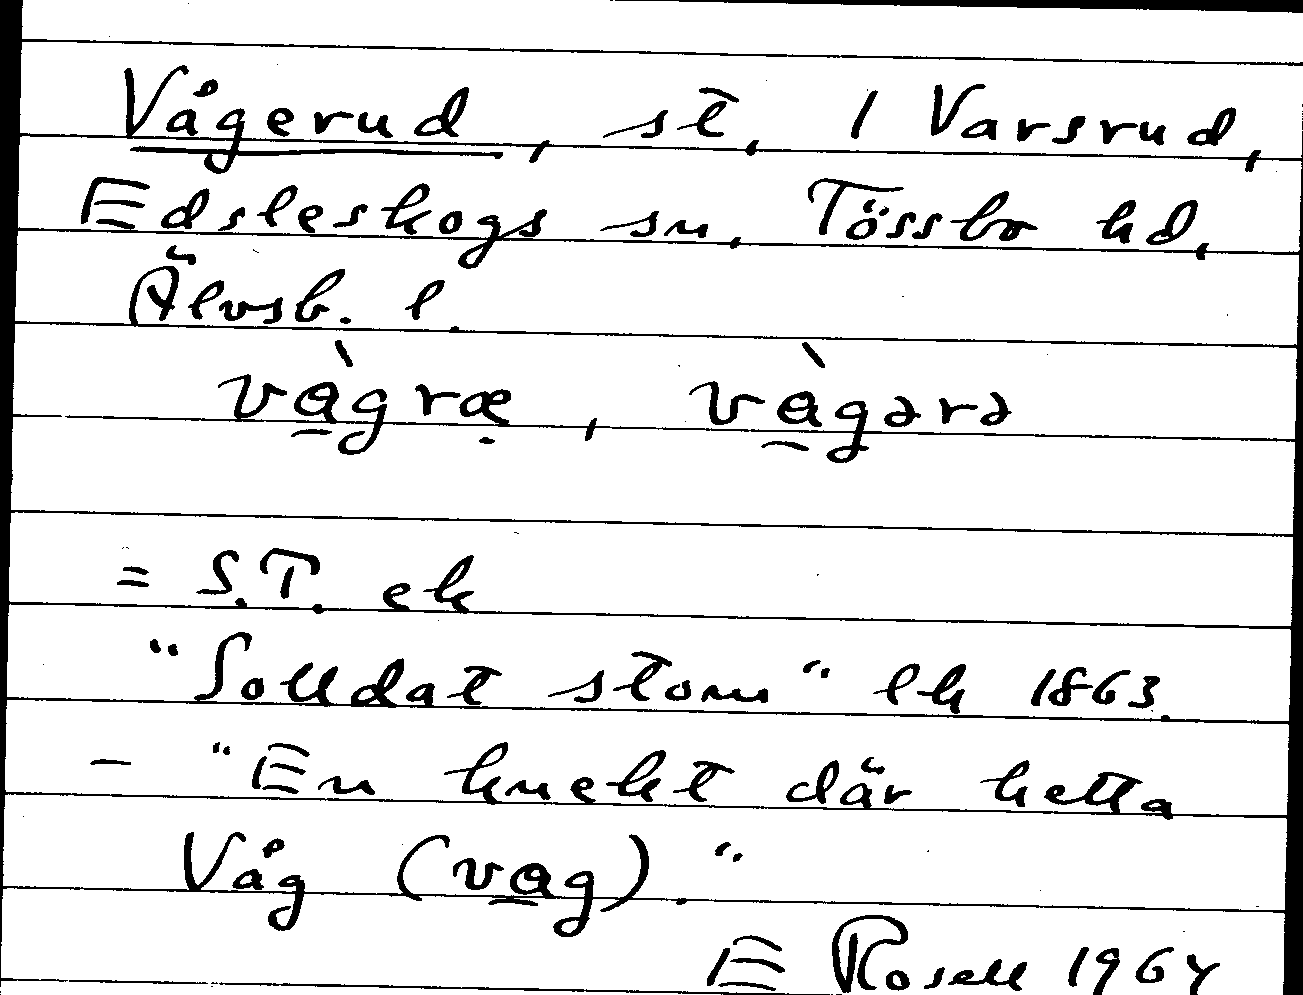 Vågerud, st, / Varsrud,
Edsleskogs sn, Tössbo hd,
Älvsb. l.
và̱græ̣, và̱gərə
= S.T. ek
"Solldat stom" lh 1863.
- "En knekt där hetta
Våg (va̱g)".
E Rosell 1964